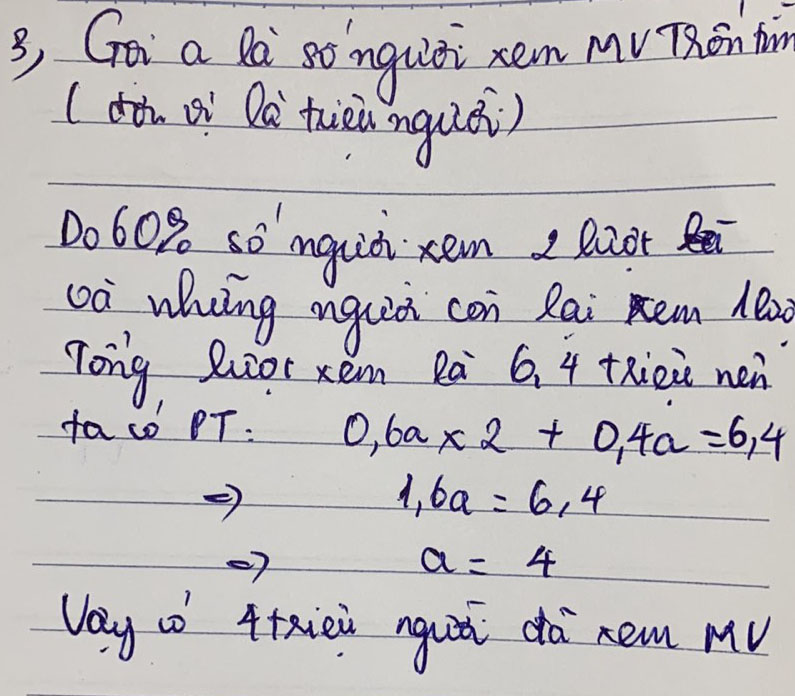 3, Gọi a là số người xem MV Trốn tìm
( đơn vị là triệu người)
Do 60% số người xem 2 lượt
và những người còn lại xem 1
Tổng lượt xem là 6,4 triệu nên
ta có PT: 0,6a x 2 + 0,4a = 6,4
=> 1,6a = 6,4
=> a = 4
Vậy có 4 triệu người đã xem MV